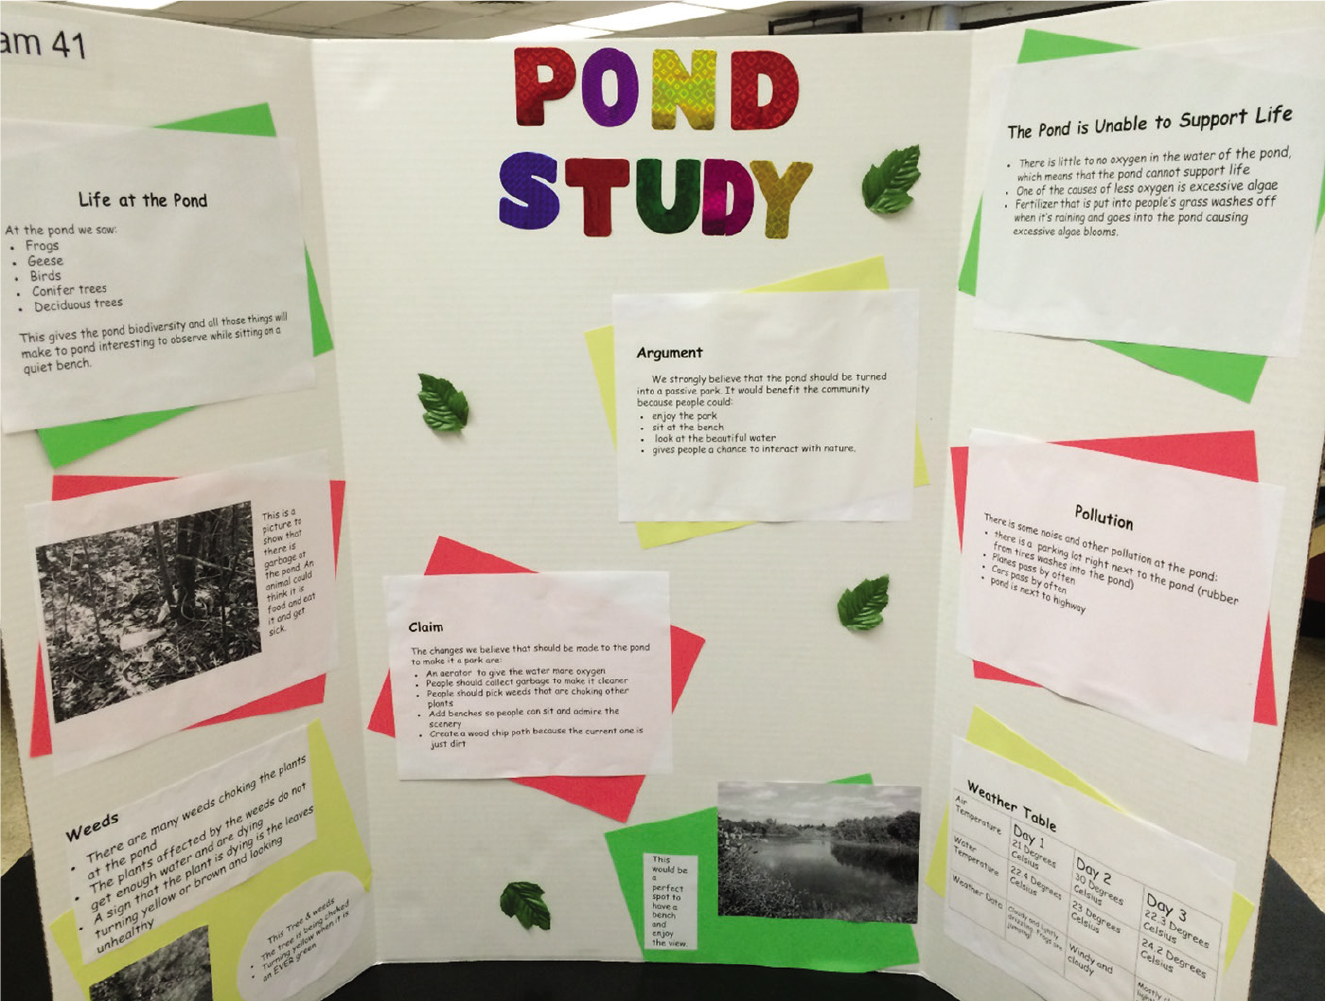 am 41
Life at the Pond
At the pond we saw:
• Frogs
• Geese
• Birds
• Conifer trees
• Deciduous trees
This gives the pond biodiversity and all those things will
make to pond interesting to observe while sitting on a
quiet bench.
This is a
picture to
show that
there is
garbage at
the pond. An
animal could
think it is
food and eat
it and get
sick.
Weeds
• There are many weeds choking the plants
at the pond
• The plants affected by the weeds do not
get enough water and are dying
• A sign that the plant is dying is the leaves
turning yellow or brown and looking
unhealthy
This Tree & weeds
• The tree is being choked
• Turning yellow when it is
an EVER green
POND
STUDY
Argument
We strongly believe that the pond should be turned
into a passive park. It would benefit the community
because people could:
• enjoy the park
• sit at the bench
• look at the beautiful water
• gives people a chance to interact with nature.
Claim
The changes we believe that should be made to the pond
to make it a park are:
• An aerator to give the water more oxygen
• People should collect garbage to make it cleaner
• People should pick weeds that are choking other
plants
• Add benches so people can sit and admire the
scenery
• Create a wood chip path because the current one is
just dirt
This
would be
a
perfect
spot to
have a
bench
and
enjoy
the view.
The Pond is Unable to Support Life
• There is little to no oxygen in the water of the pond,
which means that the pond cannot support life
• One of the causes of less oxygen is excessive algae
• Fertilizer that is put into people's grass washes off
when it's raining and goes into the pond causing
excessive algae blooms.
Pollution
There is some noise and other pollution at the pond:
• there is a parking lot right next to the pond (rubber
from tires washes into the pond)
• Planes pass by often
• Cars pass by often
• pond is next to highway
Weather Table
Day 1
Day 2
Day 3
Air
Temperature
21 Degrees
Celsius
30 Degrees
Celsius
22.3 Degrees
Celsius
Water
Temperature
22.4 Degrees
Celsius
23 Degrees
Celsius
24.2 Degrees
Celsius
Weather Data
Cloudy and lightly
drizzling. Frogs are
jumping!
Windy and
cloudy
Mostly